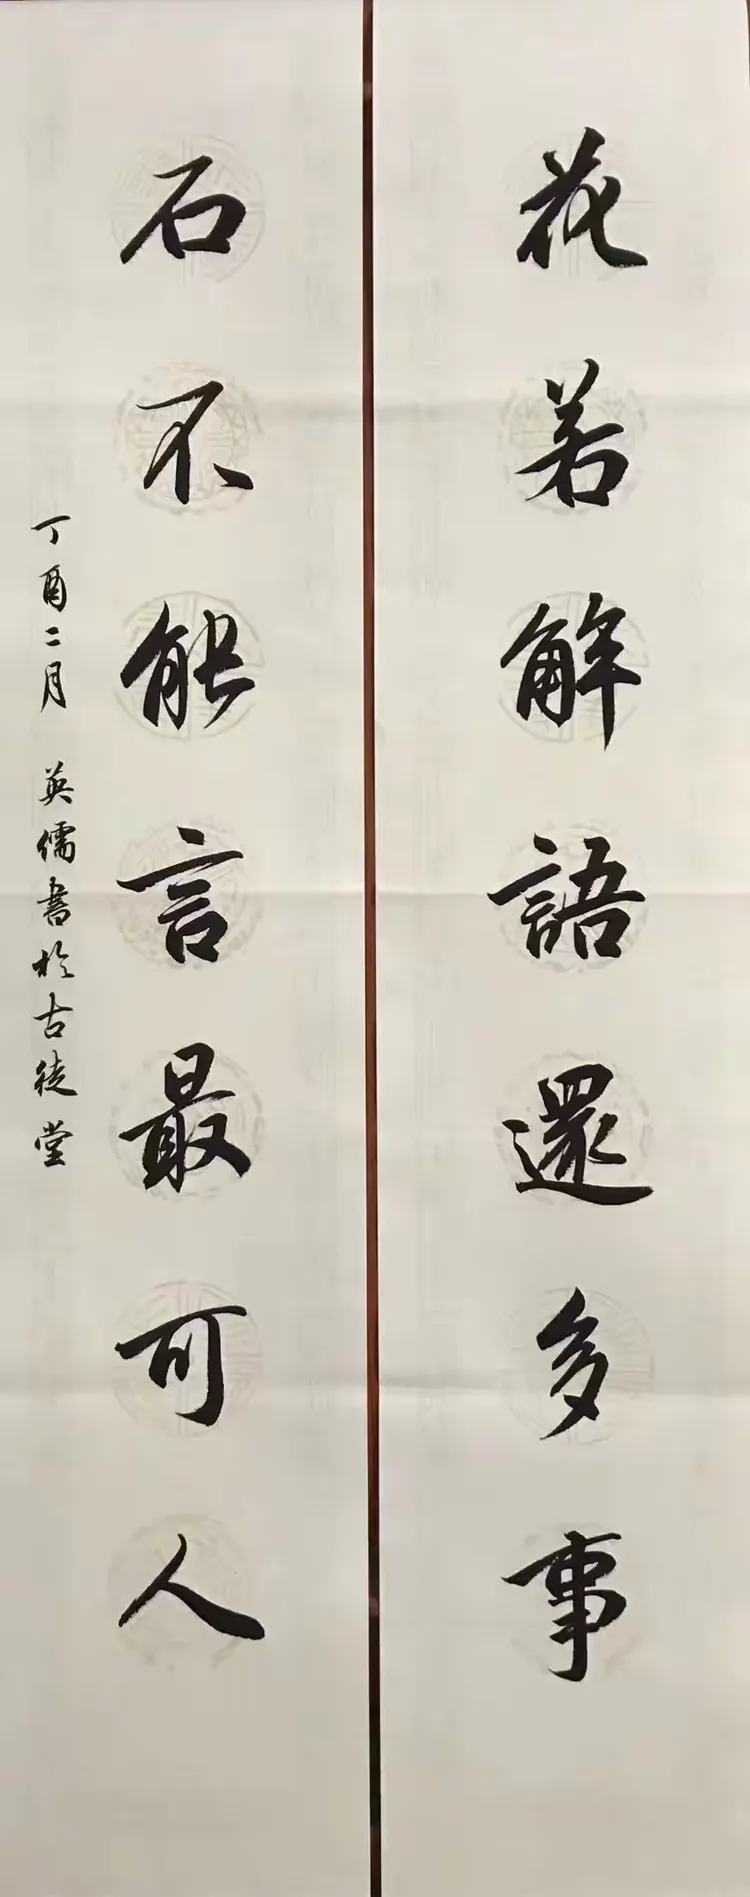 花若解語還多事
石不能言最可人
丁酉二月 英儒書於古徒堂